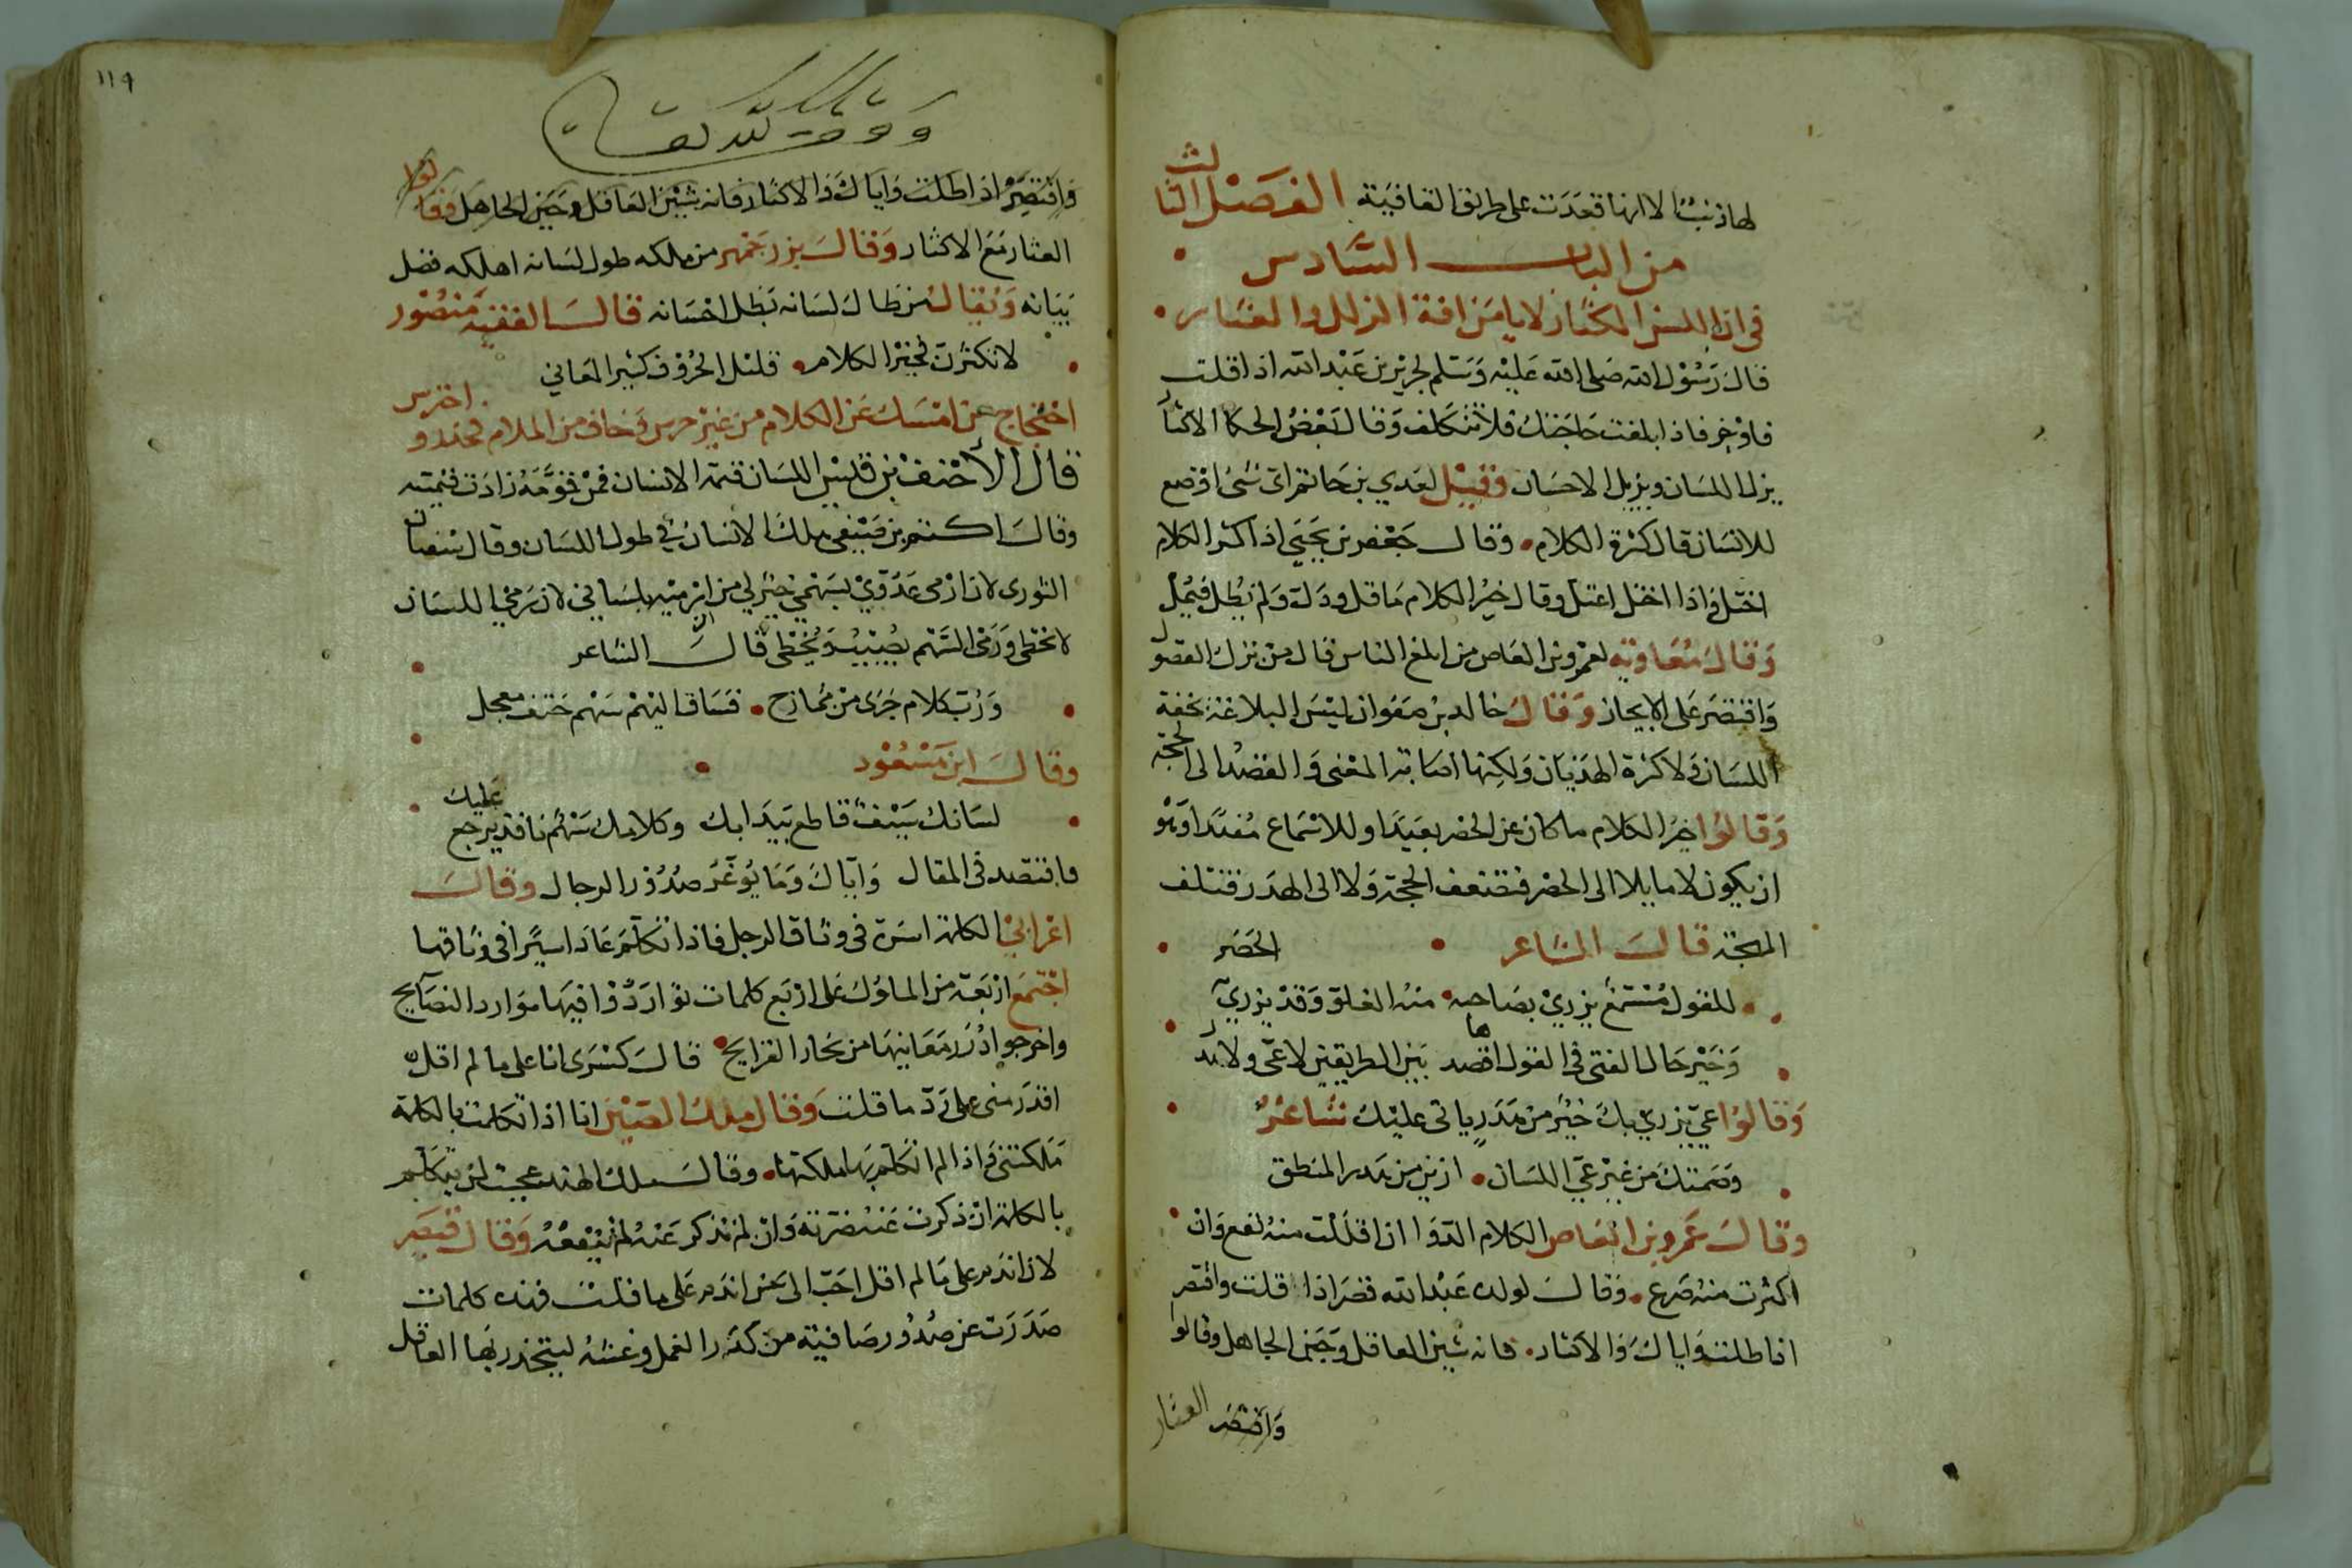 لها ذنبا الا انها قعدت على طريق القافية الفصل الثالث
من الباب السادس
في ان اللسن المكثار لا يامن افة الزلل والعثار
قال رسول الله صلى الله عليه وسلم لجرير بن عبد الله اذا قلت
فاوجز فاذا بلغت حاجتك فلا تتكلف وقال بعض الحكما الاكثار
يزل اللسان ويزيل الاحسان وقيل لعدي بن حاتم اي شي اوضع
للانسان قال كثرة الكلام وقال جعفر بن يحيى اذا كثر الكلام
اختل واذا اختل اعتل وقال خير الكلام ما قل ودل ولم يطل فيمل
وقال معاوية لعمرو بن العاص من ابلغ الناس قال من نزل الفضول
واقتصر على الايجاز وقال خالد بن صفوان ليس البلاغة بخفة
اللسان ولا كثرة الهذيان ولكنها اصابة المعنى والقصد الى الحجة
وقالوا خير الكلام ما كان عن الحصر بعيدا وللاستماع مفيدا وهو
ان يكون لا مايلا الى الحصر فتضعف الحجة ولا الى الهدر فتتلف
المهجة قال الشاعر الحصر
للقول مستمع يزري بصاحبه منه الغلو وقد يزري
وخير حال الفتى في القول اقصدها بين الطريقين لا عي ولا هذر
وقالوا عي يزري بك خير من هدر ياتي عليك شاعر
وصمتك من غير عي اللسان ازين من هدر المنطق
وقال عمرو بن العاص الكلام الدوا ان اقللت منه نفع وان
اكثرت منه صرع وقال لولده عبد الله قصر اذا قلت واقتصر
اذا طلت واياك والاكثار فانه شين العاقل وحين الجاهل وقالوا
واقتصر العثار
١١٩
واقتصر اذا طلت واياك والاكثار فانه شين العاقل وحين الجاهل وقالوا
العثار مع الاكثار وقال بزرجمهر من ملكه طول لسانه اهلكه فضل
بيانه ويقال من طال لسانه بطل احسانه قال الفقيه منصور
لا تكثرن فخير الكلام قليل الحروف كثير المعاني
احتجاج من امسك عن الكلام من غير خرس وخاف من الملام فحذر واحترس
قال الاحنف بن قيس اللسان قيمة الانسان فمن قومه زادت قيمته
وقال اكثم بن صيفي هلك الانسان في طول اللسان وقال سفيان
الثوري لان ارمى عدوي بسهمي خير لي من ان ارميه بلساني لان رمي اللسان
لا يخطي ورمي السهم يصيب ويخطي قال الشاعر
ورب كلام جرى من ممازح فساق اليهم سهم حتف معجل
وقال ابن مسعود
لسانك سيف قاطع يبدا بك وكلامك سهم نافذ يرجع عليك
فاقتصد في المقال واياك وما يوغر صدور الرجال وقال
اعرابي الكلمة اسيرة في وثاق الرجل فاذا تكلم عاد اسيرا في وثاقها
اجتمع اربعة من الملوك على اربع كلمات تواردوا فيها موارد النصايح
واخرجوا درر معانيها من بحار القرايح قال كسرى انا على ما لم اقل
اقدر مني على رد ما قلت وقال ملك الصين انا اذا تكلمت بالكلمة
ملكتني واذا لم اتكلم بها ملكتها وقال ملك الهند عجبت لمن يتكلم
بالكلمة ان ذكرت عنه ضرته وان لم تذكر عنه لم تنفعه وقال قيصر
لان اندم على ما لم اقل احب الى من اندم على ما قلت فهذه كلمات
صدرت عن صدور صافية من كدر الغل وغشه ليتحذر بها العاقل